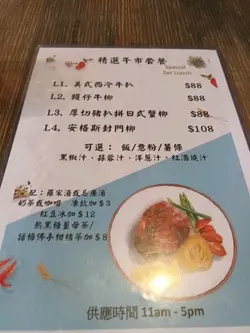 精選午市套餐
Special
Set Lunch
L1. 美式西冷牛扒 $88
L2. 鐵仔牛柳 $88
L3. 厚切豬扒拼日式蟹柳 $88
L4. 安格斯封門柳 $108
可選：飯/意粉/薯條
黑椒汁、蒜蓉汁、洋蔥汁、紅酒燒汁
配：羅宋湯或忌廉湯
奶茶或咖啡 凍飲加$3
紅豆冰加$12
熱黑糖薑母茶/
話梅佛手柑桔茶加$8
供應時間 11am - 5pm